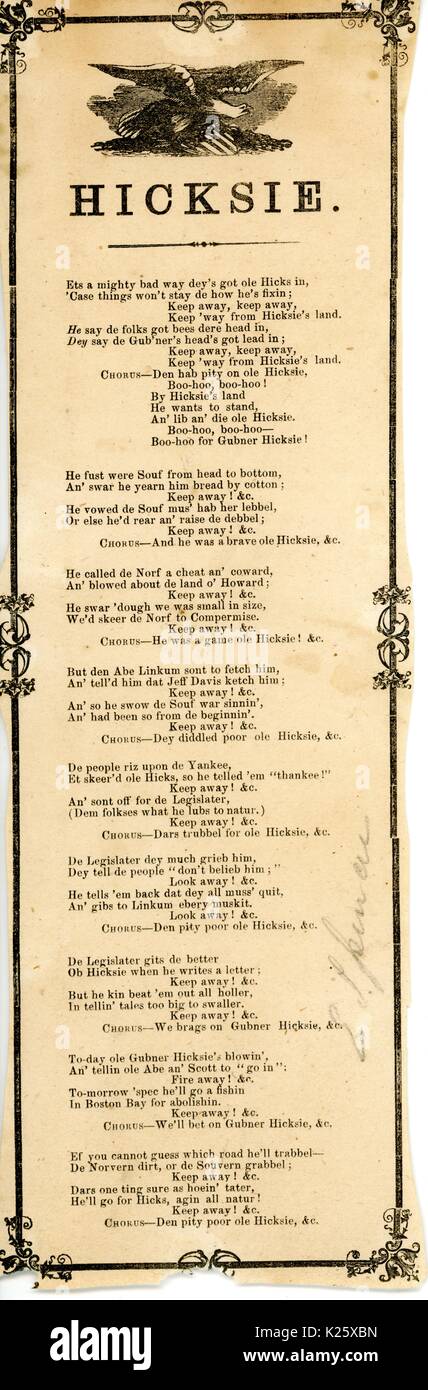 HICKSIE.
Ets a mighty bad way dey's got ole Hicks in,
'Case things won't stay de how he's fixin;
Keep away, keep away,
Keep 'way from Hicksie's land.
He say de folks got bees dere head in,
Dey say de Gub'ner's head's got lead in;
Keep away, keep away,
Keep 'way from Hicksie's land.
CHORUS—Den hab pity on ole Hicksie,
Boo-hoo, boo-hoo!
By Hicksie's land
He wants to stand,
An' lib an' die ole Hicksie.
Boo-hoo, boo-hoo—
Boo-hoo for Gubner Hicksie!
He fust were Souf from head to bottom,
An' swar he yearn him bread by cotton;
Keep away! &c.
He vowed de Souf mus' hab her lebbel,
Or else he'd rear an' raise de debbel;
Keep away! &c.
CHORUS—And he was a brave ole Hicksie, &c.
He called de Norf a cheat an' coward,
An' blowed about de land o' Howard;
Keep away! &c.
He swar 'dough we was small in size,
We'd skeer de Norf to Compermise.
Keep away! &c.
CHORUS—He was a game ole Hicksie! &c.
But den Abe Linkum sont to fetch him,
An' tell'd him dat Jeff Davis ketch him;
Keep away! &c.
An' so he swow de Souf war sinnin',
An' had been so from de beginnin'.
Keep away! &c.
CHORUS—Dey diddled poor ole Hicksie, &c.
De people riz upon de Yankee,
Et skeer'd ole Hicks, so he telled 'em "thankee!"
Keep away! &c.
An' sont off for de Legislater,
(Dem folkses what he lubs to natur.)
Keep away! &c.
CHORUS—Dars trubbel for ole Hicksie, &c.
De Legislater dey much grieb him,
Dey tell de people "don't belieb him;"
Look away! &c.
He tells 'em back dat dey all muss' quit,
An' gibs to Linkum ebery muskit.
Look away! &c.
CHORUS—Den pity poor ole Hicksie, &c.
De Legislater gits de better
Ob Hicksie when he writes a letter;
Keep away! &c.
But he kin beat 'em out all holler,
In tellin' tales too big to swaller.
Keep away! &c.
CHORUS—We brags on Gubner Hicksie, &c.
To-day ole Gubner Hicksie's blowin',
An' tellin ole Abe an' Scott to "go in";
Fire away! &c.
To-morrow 'spec he'll go a fishin
In Boston Bay for abolishin.
Keep away! &c.
CHORUS—We'll bet on Gubner Hicksie, &c.
Ef you cannot guess which road he'll trabbel—
De Norvern dirt, or de Souvern grabbel;
Keep away! &c.
Dars one ting sure as hoein' tater,
He'll go for Hicks, agin all natur!
Keep away! &c.
CHORUS—Den pity poor ole Hicksie, &c.
alamy
Image ID: K25XBN
www.alamy.com